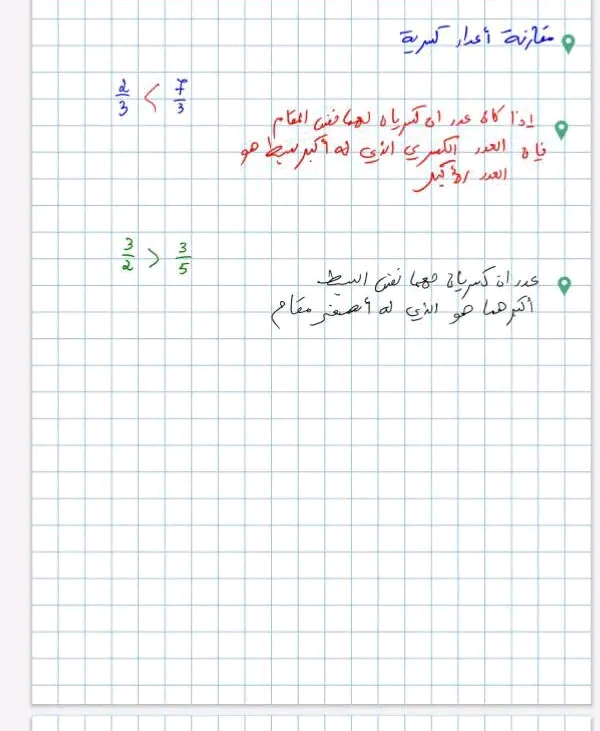 مقارنة أعداد كسرية
2/3 < 7/3
إذا كان عددان كسريان لهما نفس المقام
فإن العدد الكسري الذي له أكبر بسط هو
العدد الأكبر
3/2 > 3/5
عددان كسريان لهما نفس البسط
أكبرهما هو الذي له أصغر مقام